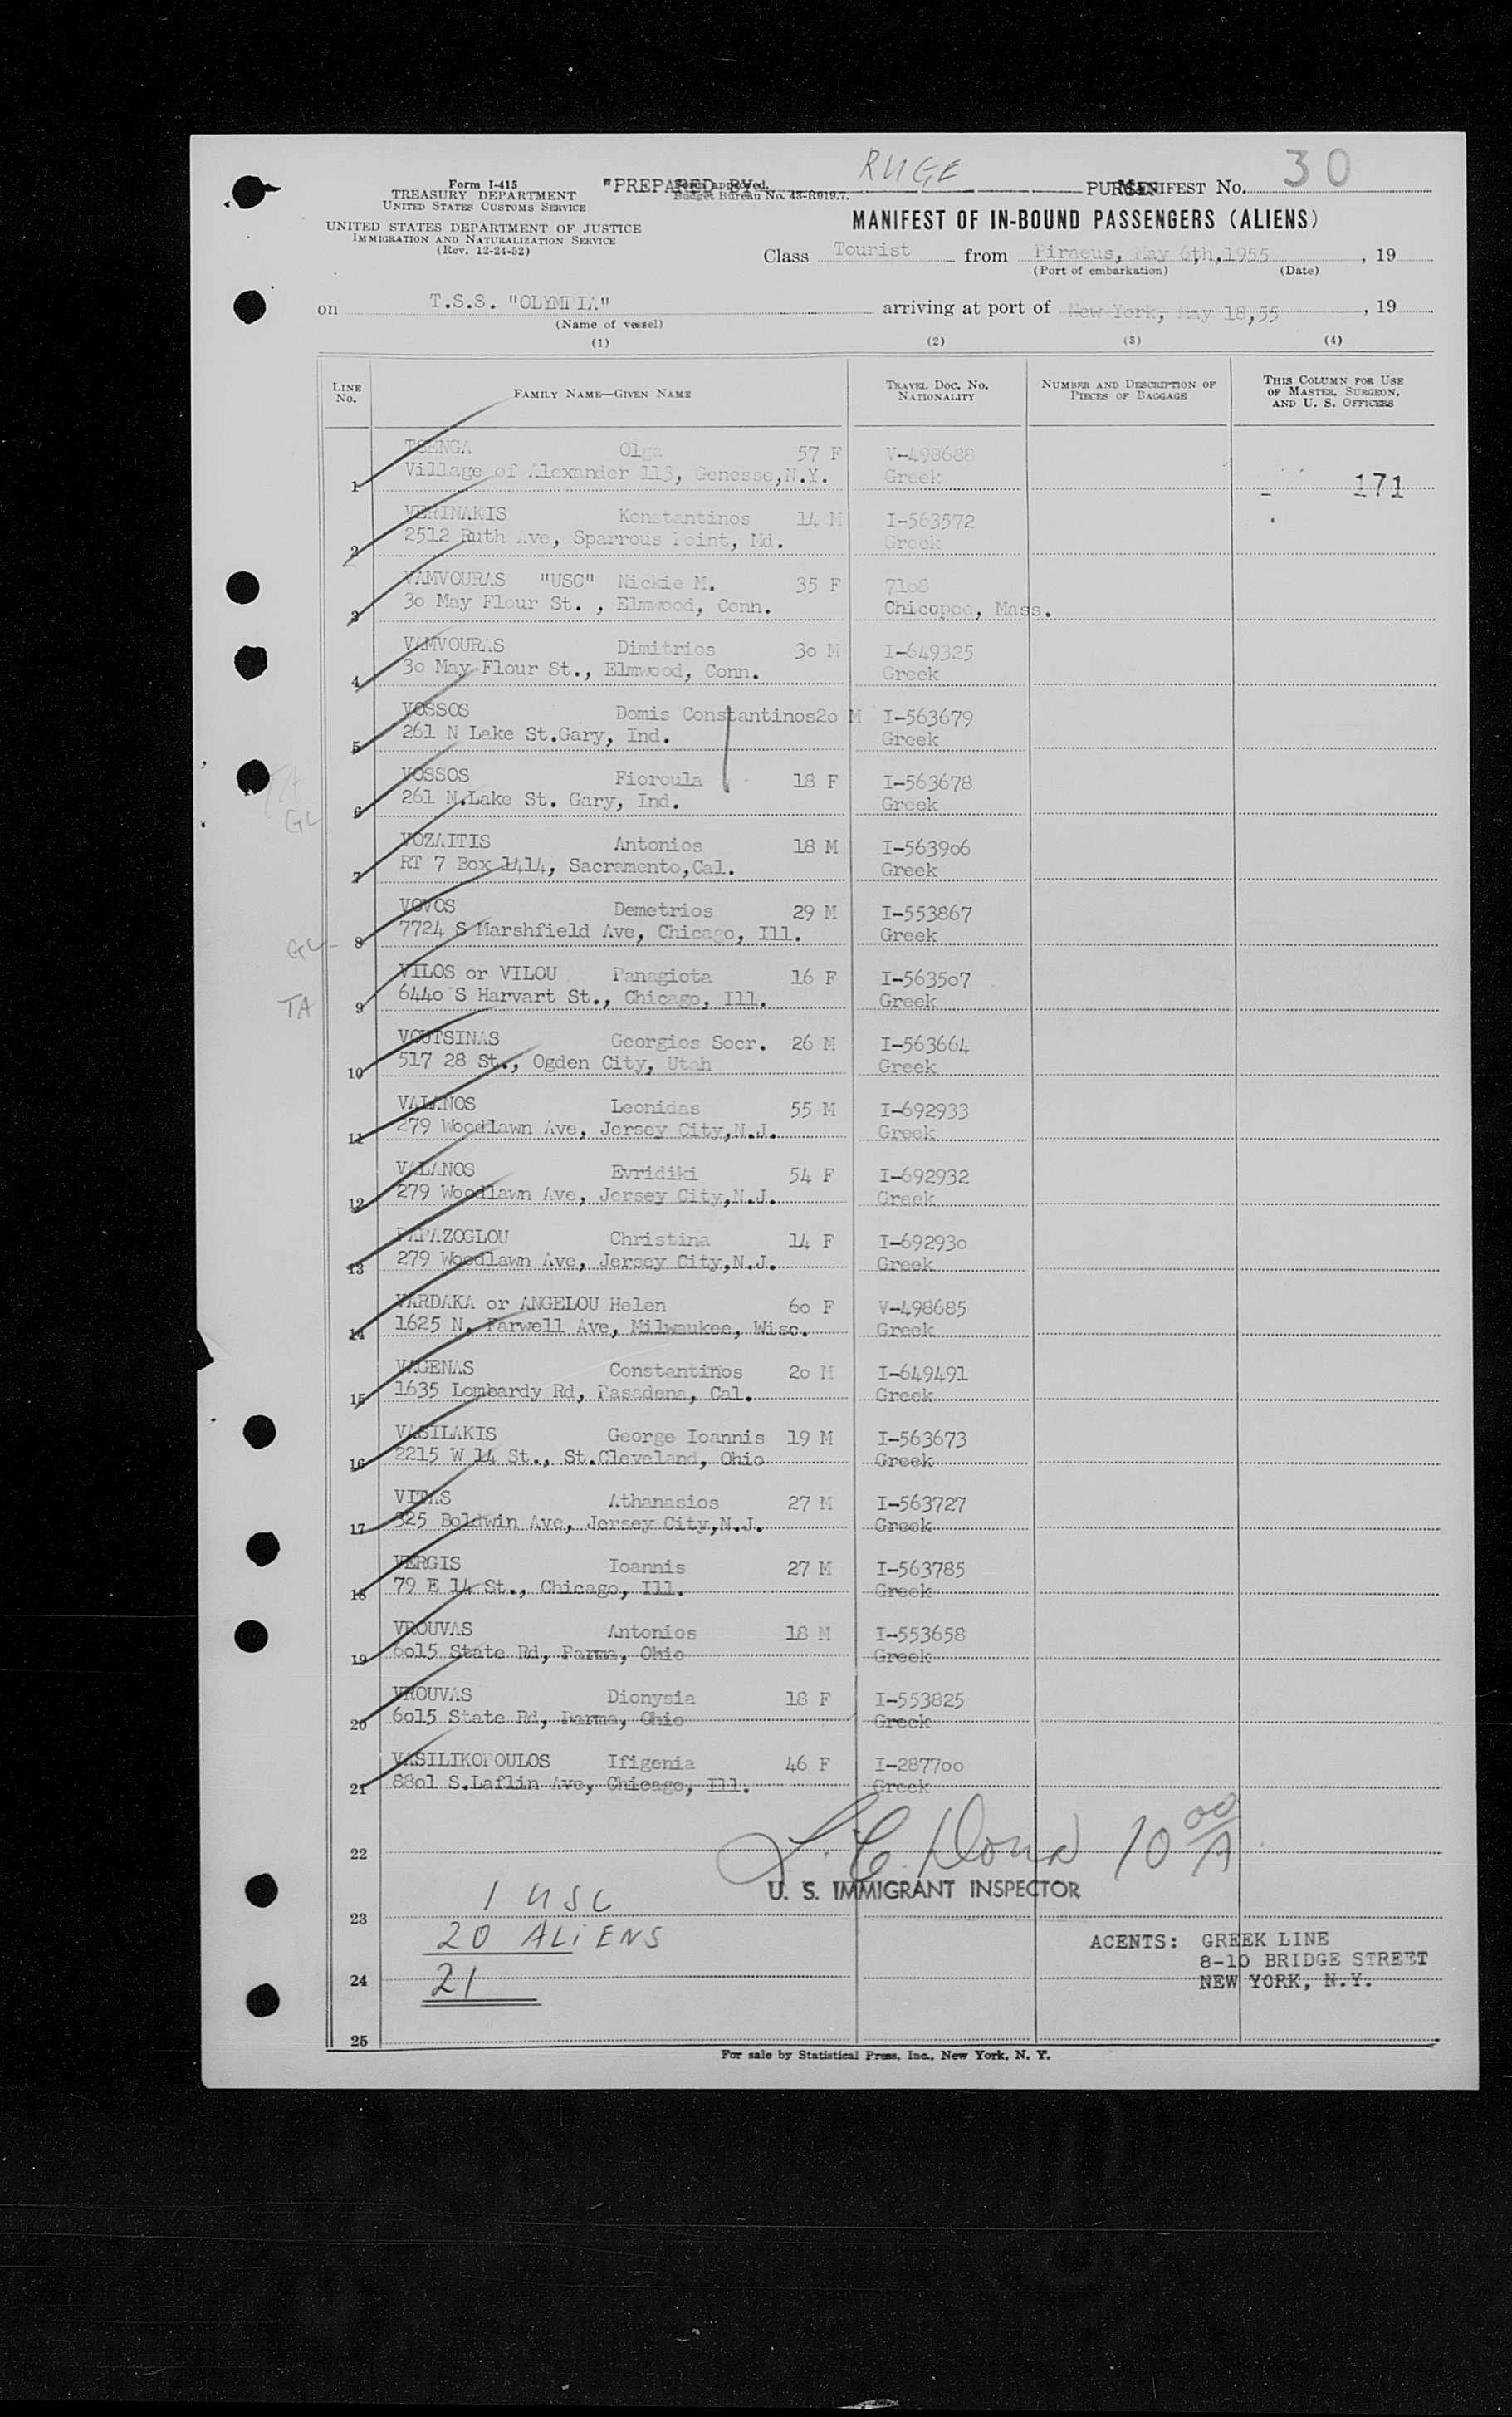 RUGE
30
Form I-415
TREASURY DEPARTMENT
UNITED STATES CUSTOMS SERVICE
UNITED STATES DEPARTMENT OF JUSTICE
IMMIGRATION AND NATURALIZATION SERVICE
(Rev. 12-24-52)
"PREPARED BY PURSER
Form approved.
Budget Bureau No. 43-R019.7.
MANIFEST No.
MANIFEST OF IN-BOUND PASSENGERS (ALIENS)
Class Tourist from Piraeus, May 6th,1955, 19
(Port of embarkation) (Date)
on T.S.S. "OLYMPIA" arriving at port of New York, May 18,55, 19
(Name of vessel)
(1) (2) (3) (4)
LINE No. FAMILY NAME—GIVEN NAME TRAVEL DOC. NO. NATIONALITY NUMBER AND DESCRIPTION OF PIECES OF BAGGAGE THIS COLUMN FOR USE OF MASTER, SURGEON, AND U. S. OFFICERS
TSENGA Olga 57 F V-498688
1 Village of Alexander 113, Genesse,N.Y. Greek 171
VERINAKIS Konstantinos 14 M I-563572
2 2512 Ruth Ave, Sparrous Point, Md. Greek
VAMVOURAS "USC" Nickie M. 35 F 71o8
3 3o May Flour St. , Elmwood, Conn. Chicopee, Mass.
VAMVOURAS Dimitrios 3o M I-649325
4 3o May Flour St., Elmwood, Conn. Greek
VOSSOS Domis Constantinos2o M I-563679
5 261 N Lake St.Gary, Ind. Greek
VOSSOS Fioroula 18 F I-563678
6 261 N.Lake St. Gary, Ind. Greek
TA
GL
VOZAITIS Antonios 18 M I-5639o6
7 RT 7 Box 1414, Sacramento,Cal. Greek
VOVOS Demetrios 29 M I-553867
GL- 8 7724 S Marshfield Ave, Chicago, Ill. Greek
VILOS or VILOU Panagiota 16 F I-5635o7
TA 9 644o S Harvart St., Chicago, Ill. Greek
VOUTSINAS Georgios Socr. 26 M I-563664
10 517 28 St., Ogden City, Utah Greek
VALANOS Leonidas 55 M I-692933
11 279 Woodlawn Ave, Jersey City,N.J. Greek
VALANOS Evridiki 54 F I-692932
12 279 Woodlawn Ave, Jersey City,N.J. Greek
PAPAZOGLOU Christina 14 F I-69293o
13 279 Woodlawn Ave, Jersey City,N.J. Greek
VARDAKA or ANGELOU Helen 6o F V-498685
14 1625 N. Farwell Ave, Milwaukee, Wisc. Greek
VAGENAS Constantinos 2o M I-649491
15 1635 Lombardy Rd, Pasadena, Cal. Greek
VASILAKIS George Ioannis 19 M I-563673
16 2215 W 14 St., St.Cleveland, Ohio Greek
VITAS Athanasios 27 M I-563727
17 325 Boldwin Ave, Jersey City,N.J. Greek
VERGIS Ioannis 27 M I-563785
18 79 E 14 St., Chicago, Ill. Greek
VROUVAS Antonios 18 M I-553658
19 6o15 State Rd, Parma, Ohio Greek
VROUVAS Dionysia 18 F I-553825
20 6o15 State Rd, Parma, Ohio Greek
VASILIKOPOULOS Ifigenia 46 F I-2877oo
21 88o1 S.Laflin Ave, Chicago, Ill. Greek
22
10 00/A
U. S. IMMIGRANT INSPECTOR
1 USC
23
20 ALiENS
ACENTS: GREEK LINE
8-10 BRIDGE STREET
24 21 NEW YORK, N.Y.
25
For sale by Statistical Press, Inc., New York, N. Y.